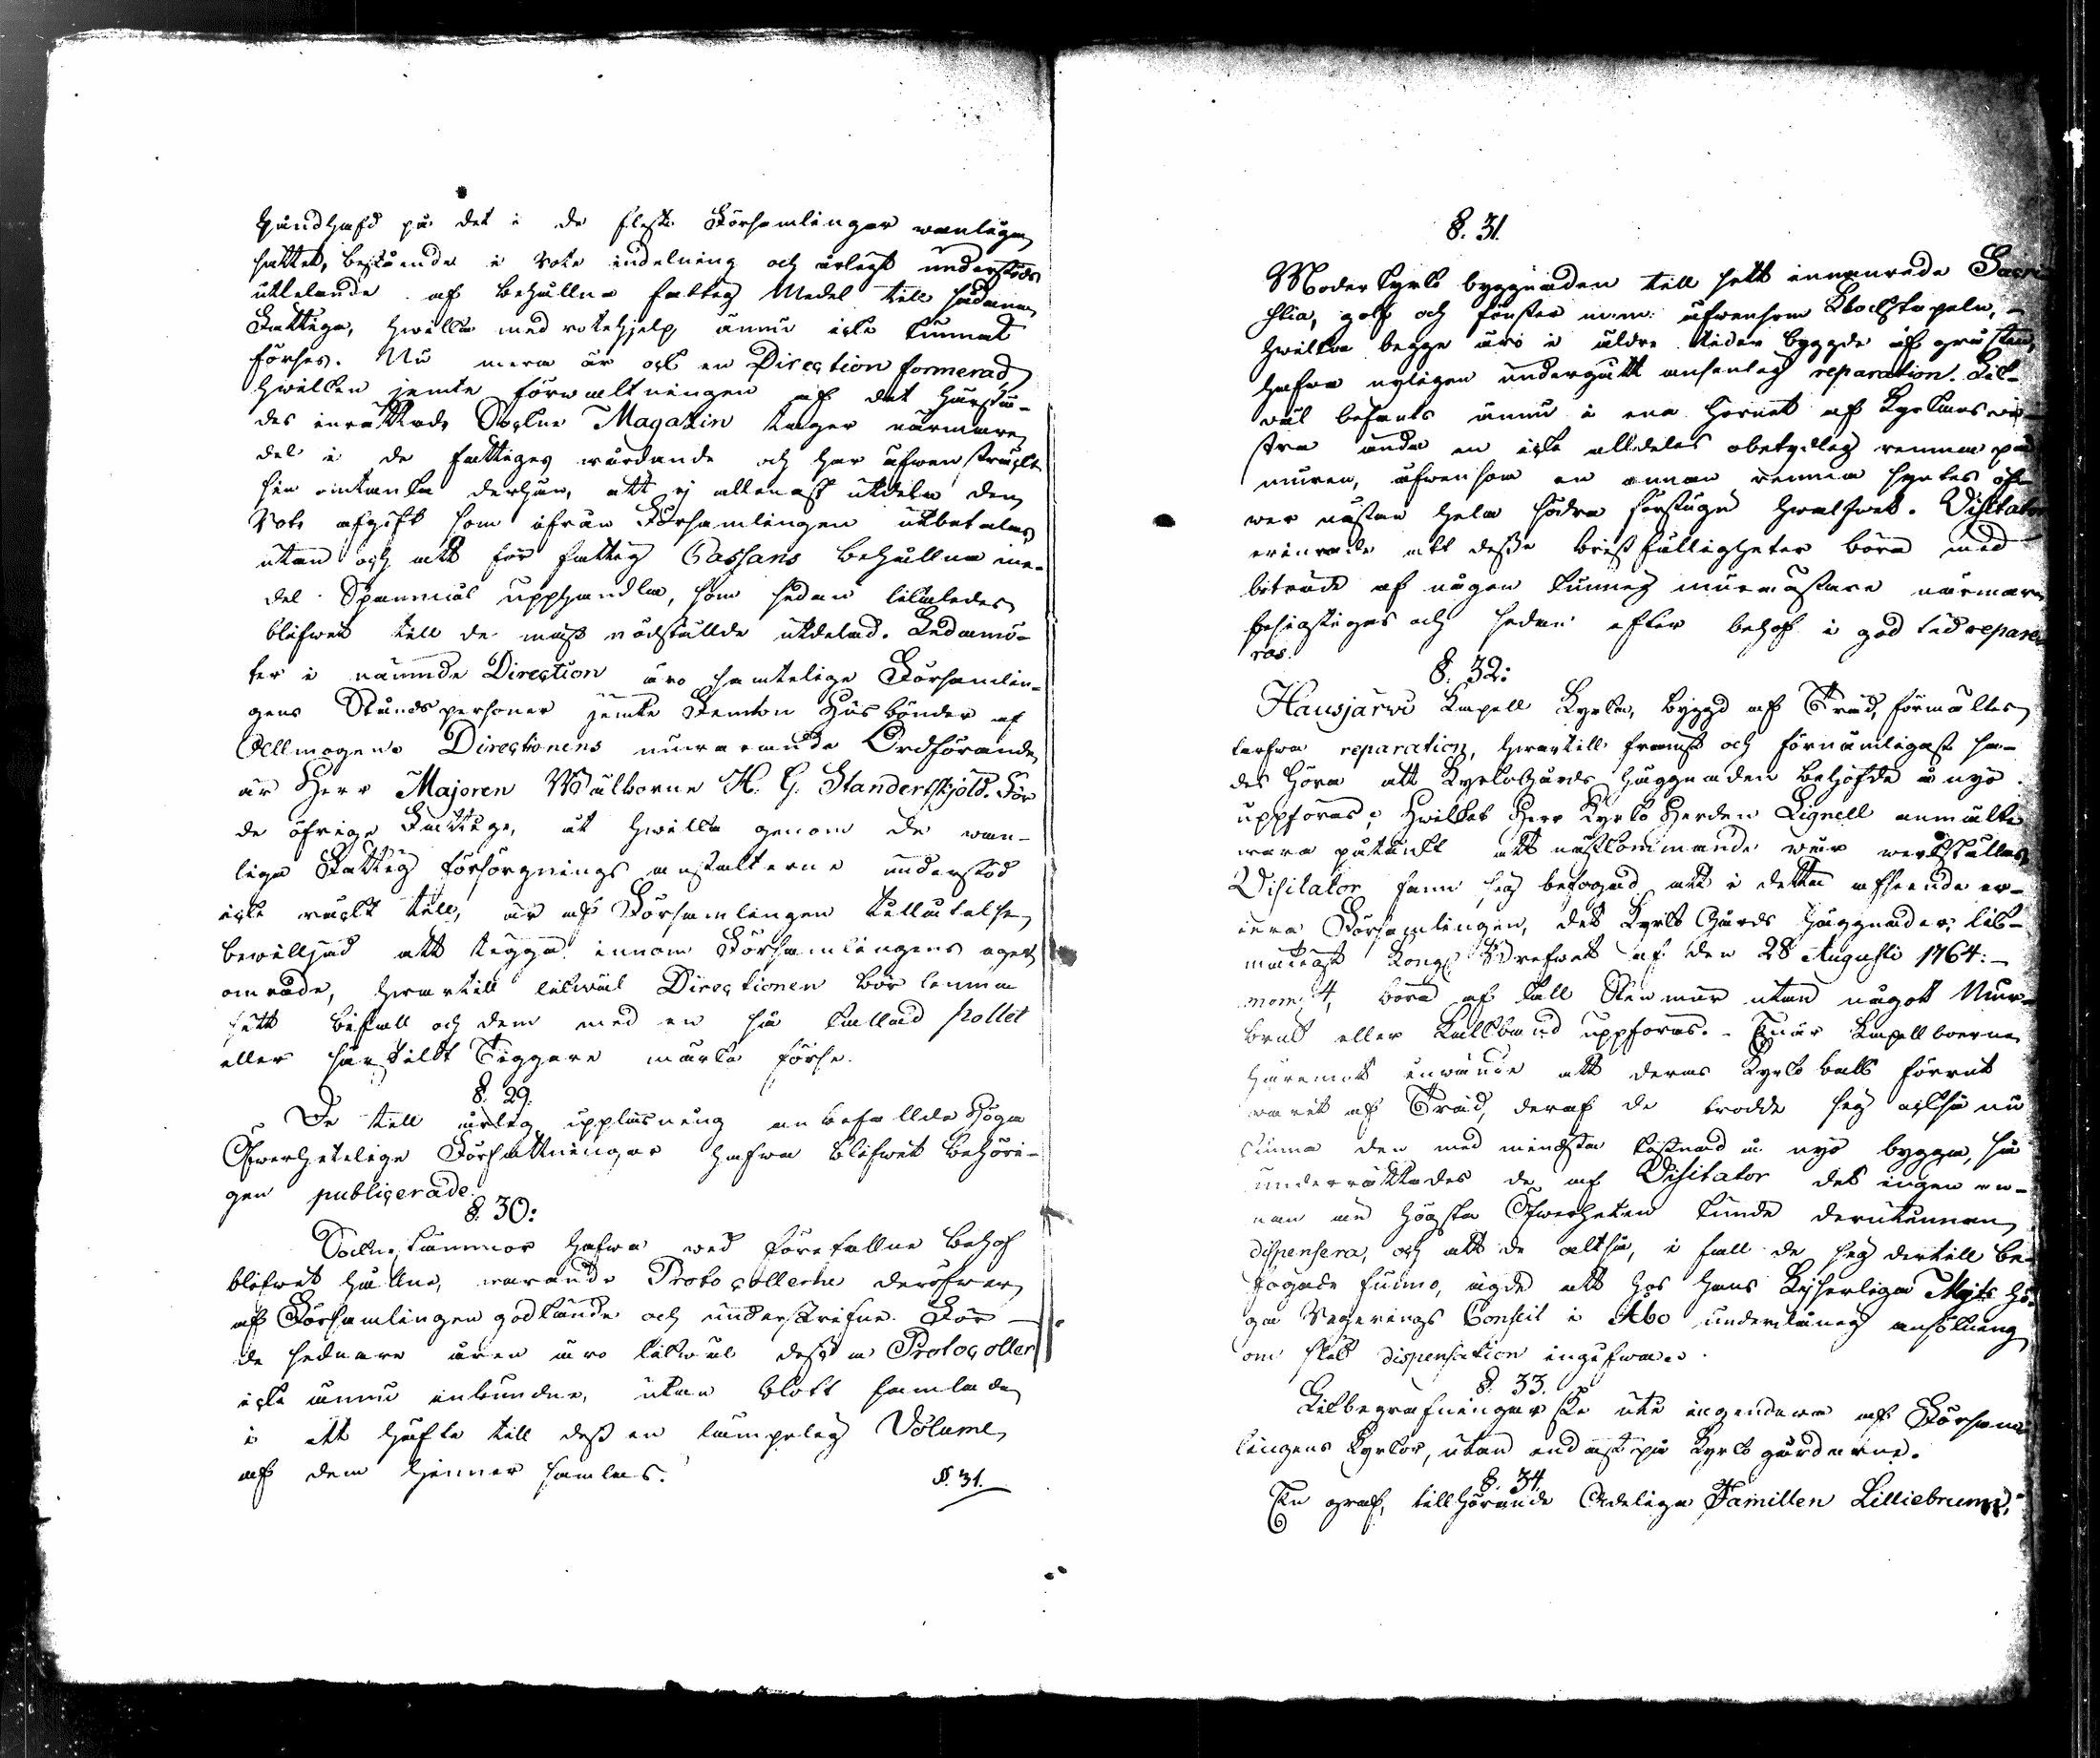 handhafd på det i de fleste Församlingar wanliga
sättet, bestående i Rote indelning och årligt understöds
utdelande af behållne fattig Medel till sådana
Fattiga, hwilka med rotehjelp ännu icke kunnat
förses. Nu mera är ock en Direction formerad
hwilken jemte förwaltningen af det härstä-
des inrättade Sockne Magazin tager närmare
del i de fattigas wårdande och har äfwen sträckt
sin omtanka derhän, att ej allenast utdela den
Rote afgift som ifrån Församlingen utbetalas
utan och att för fattig Cassans behållna me-
del Spannmål upphandla, som sedan likaledes
blifwit till de mäst nödställde utdelad. Ledamö-
ter i nämnde Direction äro samtelige Församlin-
gens Ståndspersoner jemte Femton Husbönder af
Allmogen. Directionens nuwarande Ordförande
är Herr Majoren Wälborne H. G. Standertskjöld. För
de öfrige Fattige, åt hwilka genom de wan-
liga Fattig försörgnings anstalterne understöd
icke räckt till, är af Församlingen tillåtelse
bewilljad att tigga innom Församlingens eget
område, hwartill likwäl Directionen bör lemna
sitt bifall och dem med en så kallad pollet
eller särskildt Tiggare märke förse.
§. 29.
De till årlig uppläsning anbefallda Höga
Öfwerhetelige Författningar hafwa blifwit behöri-
gen publicerade.
§. 30:
Sockne stämmor hafwa wid förefallne behof
blifwit hållne, warande Protocollerne deröfwer
af Församlingen godkände och underskrifne. För
de sednare åren äro likwäl dessa Protocoller
icke ännu inbundne, utan blott samlade
i ett häfte till dess en lämpelig Volume
af dem hinner samlas.
§. 31.
§. 31.
Moderkyrko byggnaden till sitt innanrede Sacri-
stia, golf och fönster m.m. äfwensom Klockstapeln,
hwilka begge äro i äldre tider byggde af gråsten,
hafwa nyligen undergått ansenlig reparation. Lik-
wäl befants ännu i ena hörnet af Kyrkans wä-
stra ända en icke alldeles obetydlig remna på
muren, äfwensom en annan remna syntes öf-
wer nästan hela södra förstugu hwalfwet. Visitator
erinrade att desse bristfälligheter böra med
biträde af någon kunnig murmästare närmare
besigtigas och sedan efter behof i god tid repare-
ras.
§. 32:
Hausjärwi Kapell Kyrka, byggd af Träd, förmältes
tarfwa reparation, hwartill främst och förnämligast sa-
des höra att Kyrkogårds häggnaden behöfde å nyo
uppföras; hwilket Herr Kyrko Herden Lignell anmälte
wara påtänkt att nästkommande wår werkställas.
Visitator fann sig befogad att i detta afseende er-
inra Församlingen, det Kyrko Gårds häggnader, lik-
mätigt Kongl. Brefwet af den 28 Augusti 1764:
mom 4, böra af kall Stenmur utan något Mur-
bruk eller Kalkband uppföras. När Kapellboerne
häremot inwände att deras Kyrko balk förrut
warit af Träd, deraf de trodde sig ock så nu
kunna den med mindsta kostnad å nyo bygga, så
underrättades de af Visitator det ingen an-
nan än högsta Öfwerheten kunde derutinnan
dispensera, och att de altså, i fall de sig dertill be-
fogade funno, ägde att hos Hans Kejserliga Majts Hö-
ga Regerings Conseil i Åbo underdånig ansökning
om slik dispensation ingifwa.
§. 33.
Likbegrafningar ske uti ingendera af Försam-
lingens Kyrkor, utan endast på Kyrko gårdarne.
§. 34.
En graf, tillhörande Adeliga Familien Lilliebrunn,